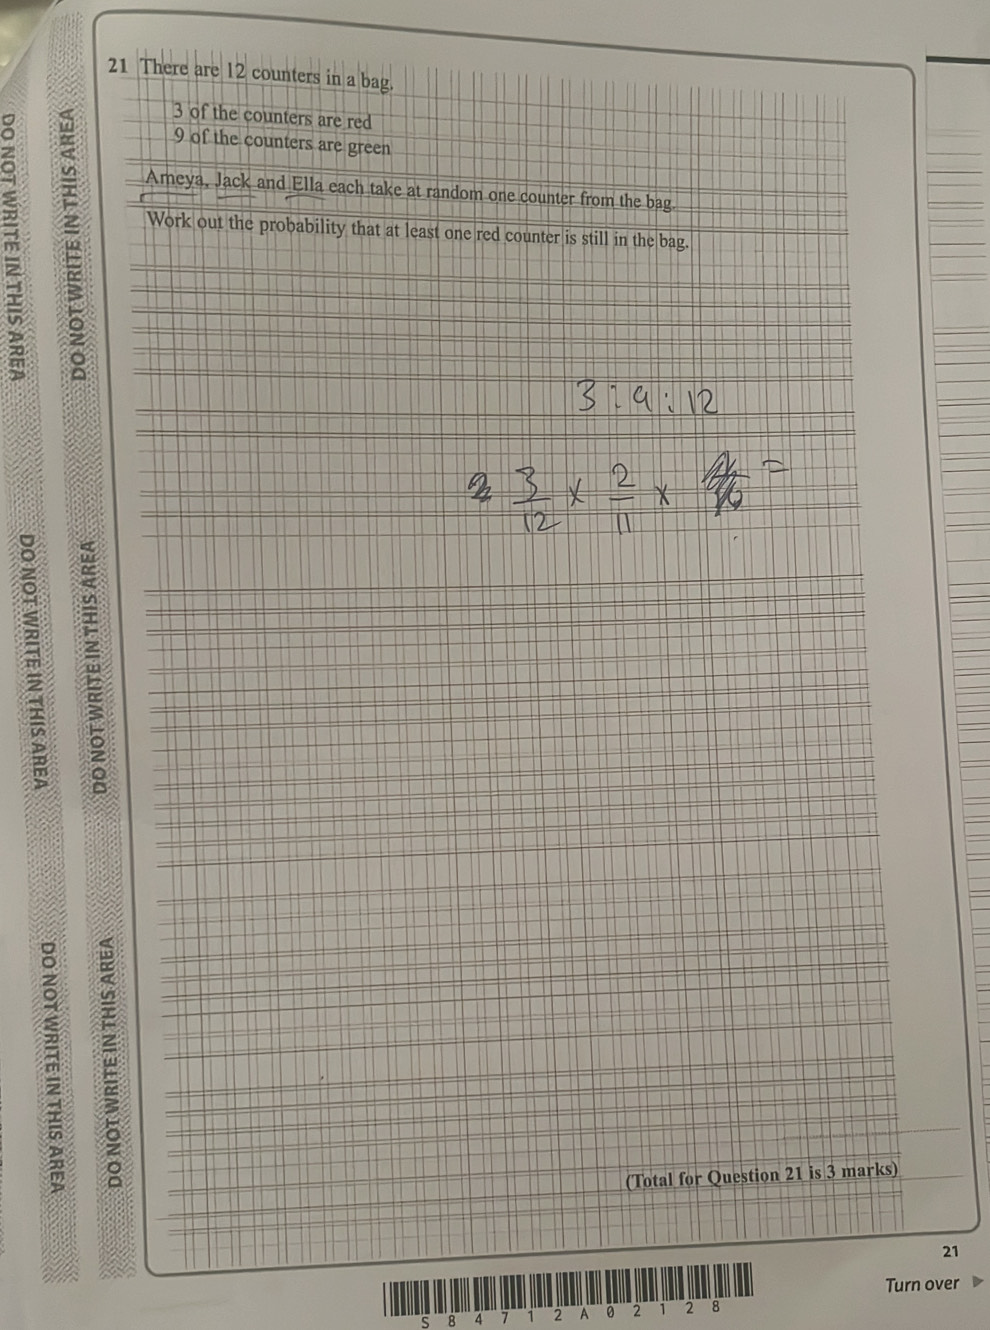 21 There are 12 counters in a bag.
3 of the counters are red
9 of the counters are green
Ameya, Jack and Ella each take at random one counter from the bag.
Work out the probability that at least one red counter is still in the bag.
3 : 9 : 12
3/12 × 2/11 × =
(Total for Question 21 is 3 marks)
21
Turn over
S 8 4 7 1 2 A 0 2 1 2 8
DO NOT WRITE IN THIS AREA
DO NOT WRITE IN THIS AREA
DO NOT WRITE IN THIS AREA
DO NOT WRITE IN THIS AREA
DO NOT WRITE IN THIS AREA
DO NOT WRITE IN THIS AREA